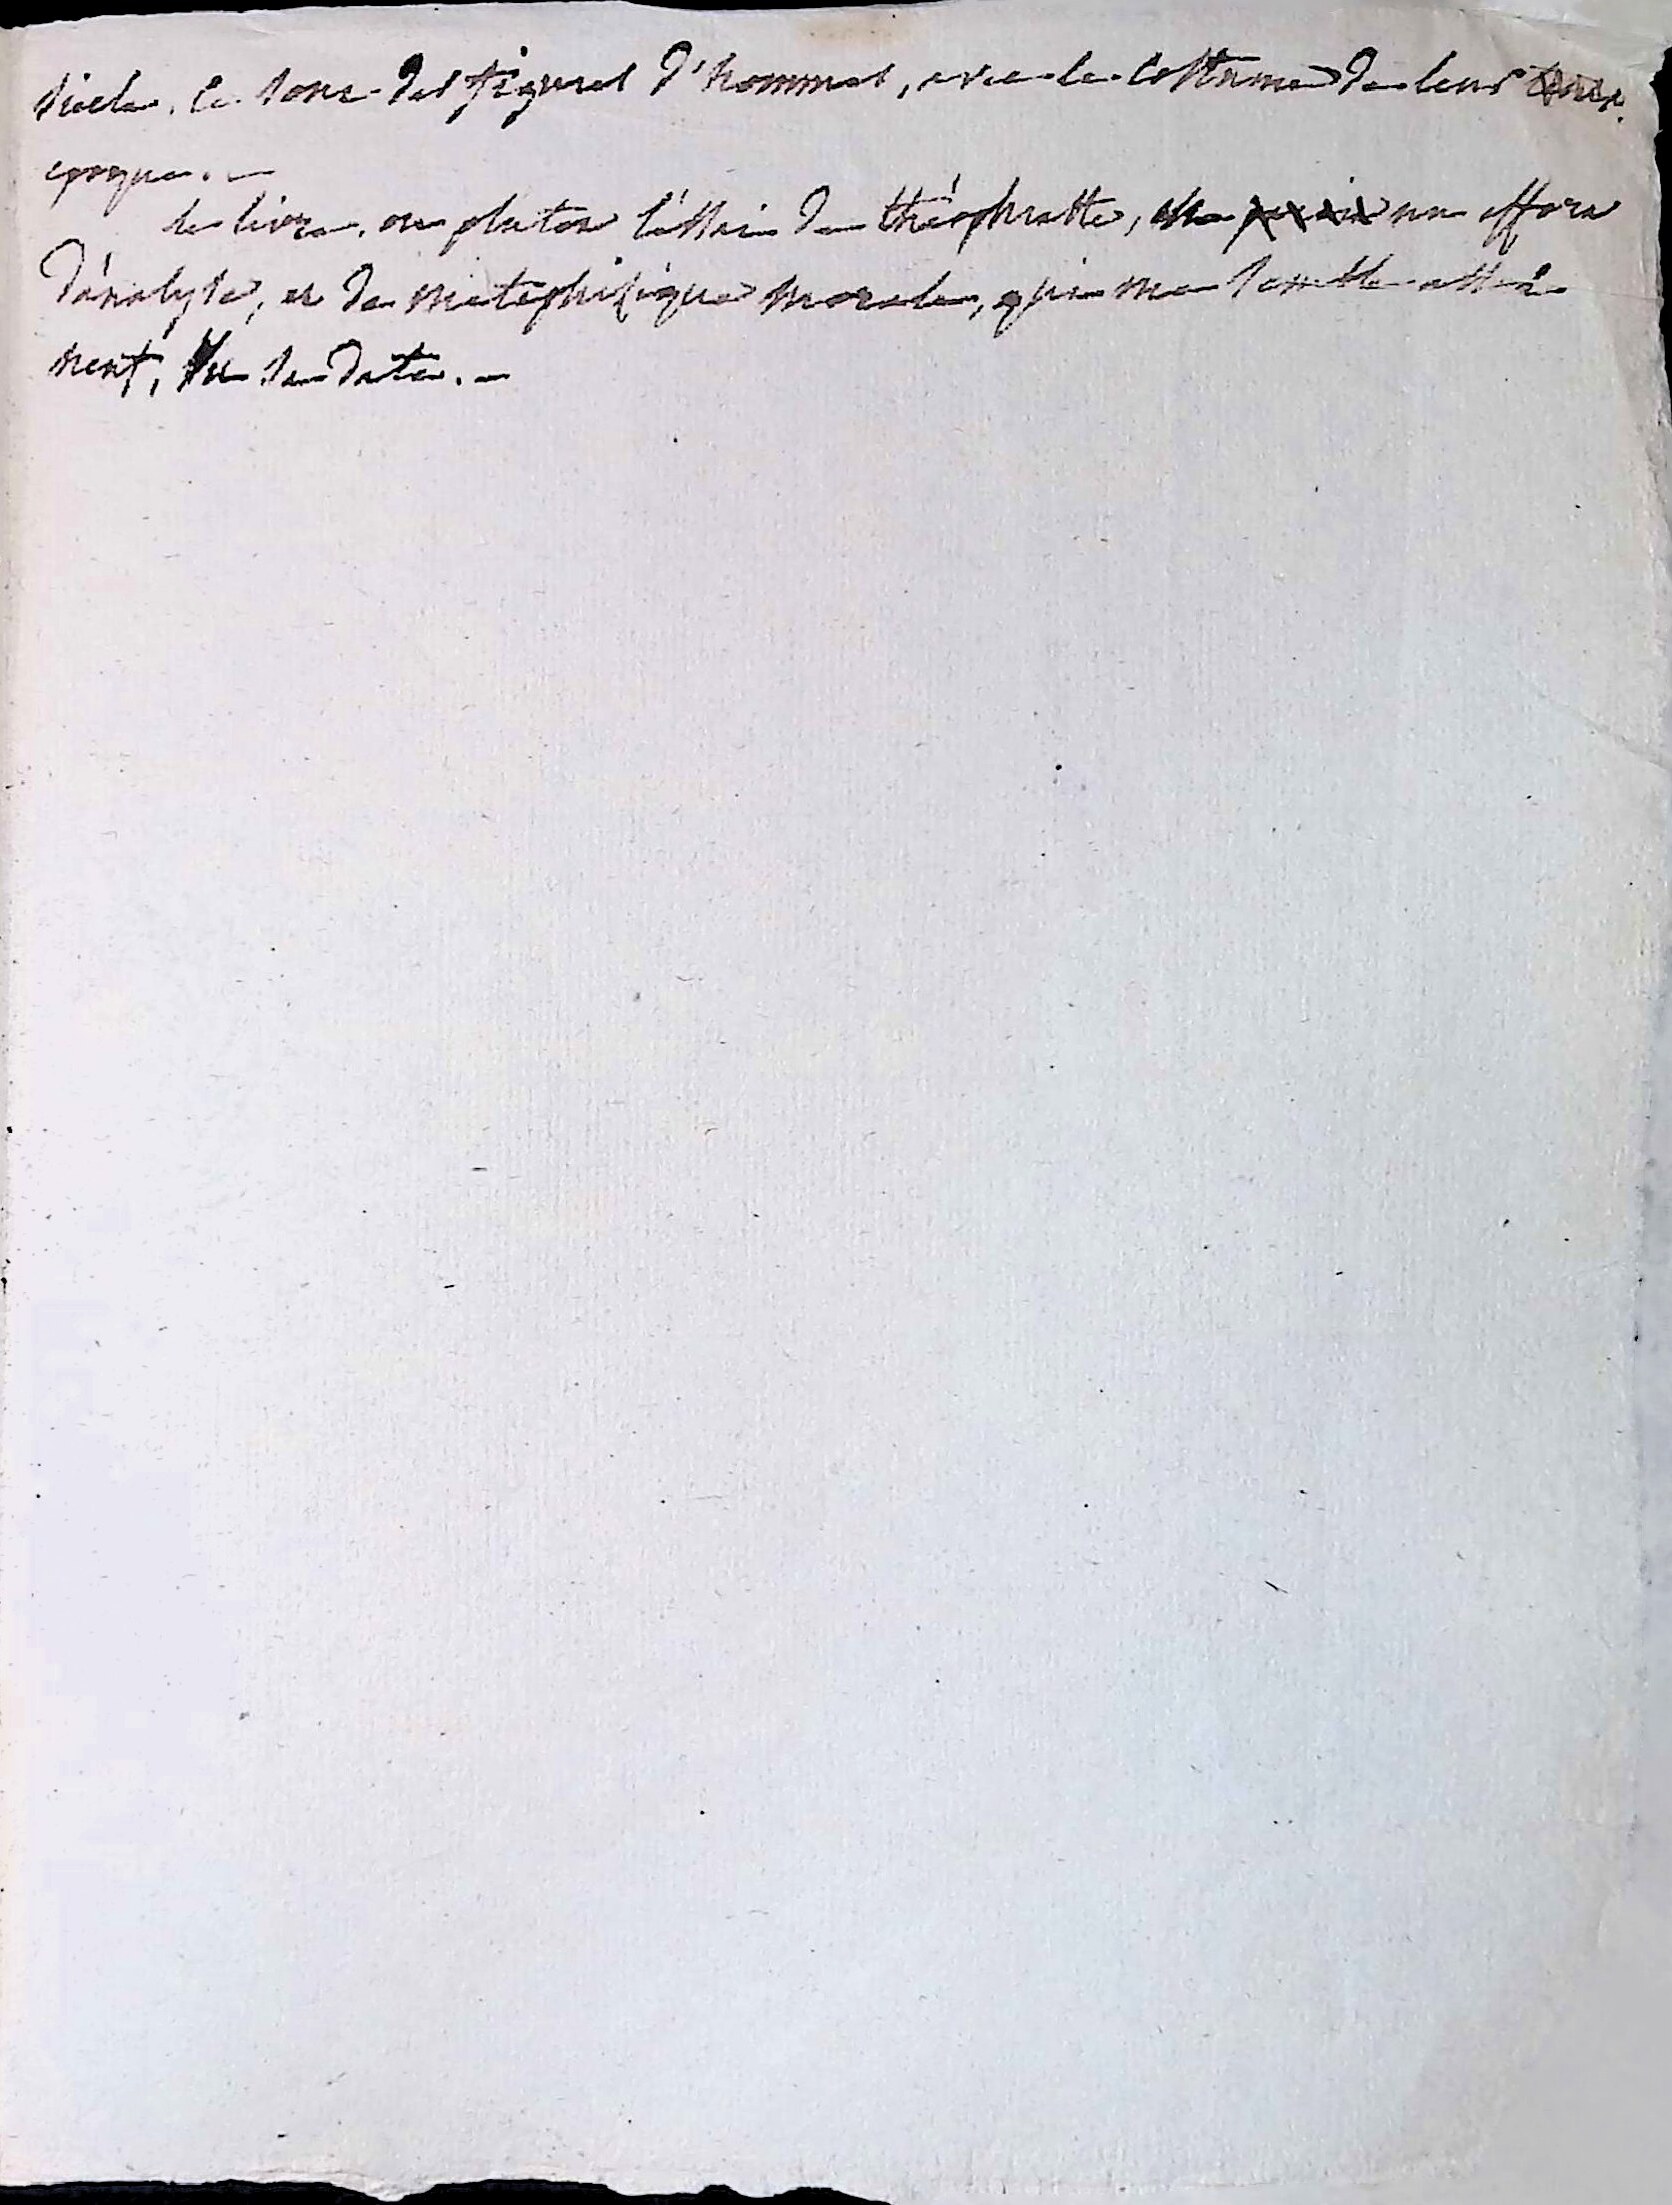 siecle. ce sont des figures d'hommes, avec le costume de leur
epoque. —
le livre, ou plutot l'essai de théophraste, est un effort
d'analyse, et de metaphisique morale, qui me semble
nent, vu sa date. —